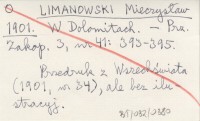 LIMANOWSKI Mieczysław
1901. W Dolomitach. – Prz.
Zakop. 3, nr 41: 393-395.
Przedruk z Wszechświata
(1901, nr 34), ale bez ilu-
stracyj.